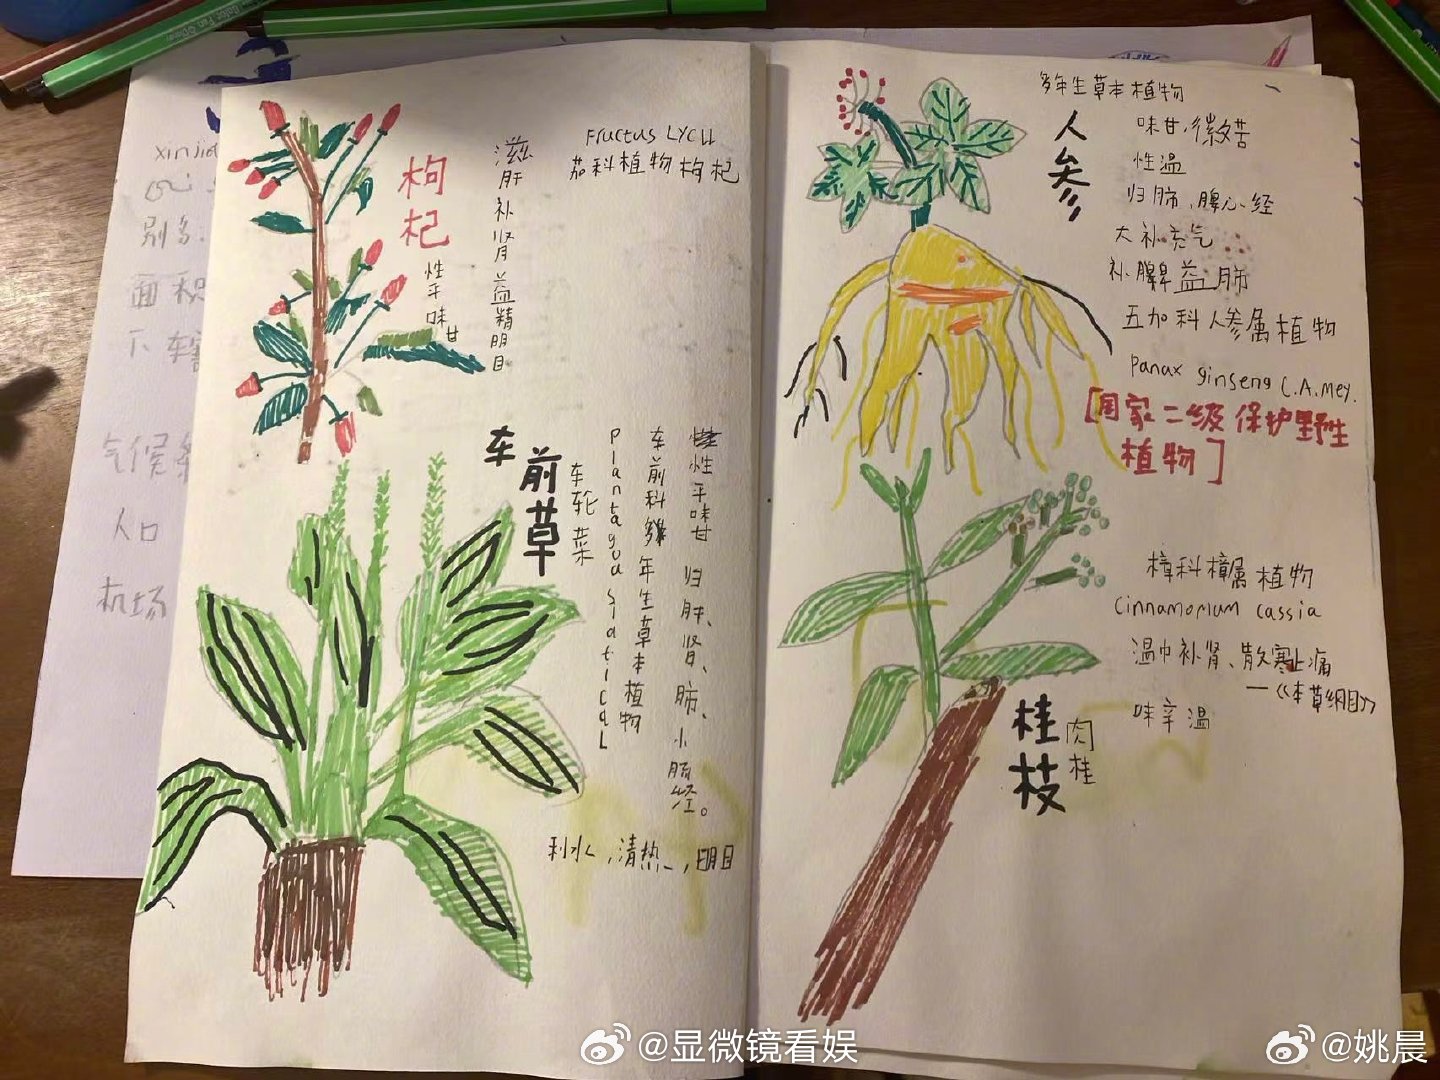 枸杞
性平味甘
滋肝补肾益精明目
Fructus LYCLL
茄科植物枸杞
车前草
车轮菜
Plantagoa SiaticaL
车前科多年生草本植物
性平味甘 归肝、肾、肺、小肠经。
利水,清热,明目
多年生草本植物
人参
味甘、微苦
性温
归肺、脾心经
大补元气
补脾益肺
五加科人参属植物
Panax ginseng C.A.Mey.
[国家二级保护野生
植物]
樟科樟属植物
Cinnamomum cassia
温中补肾、散寒止痛
—《本草纲目》
味辛温
桂枝
肉桂
别名
面积
下辖
气候
人口
机场
@显微镜看娱
@姚晨